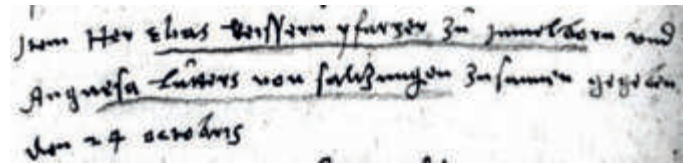 Item Her Elias Keissern pfarrer zu Immelborn und
Angnesa Lutters von saltzungen zusamen gegeben
den 24 octobris